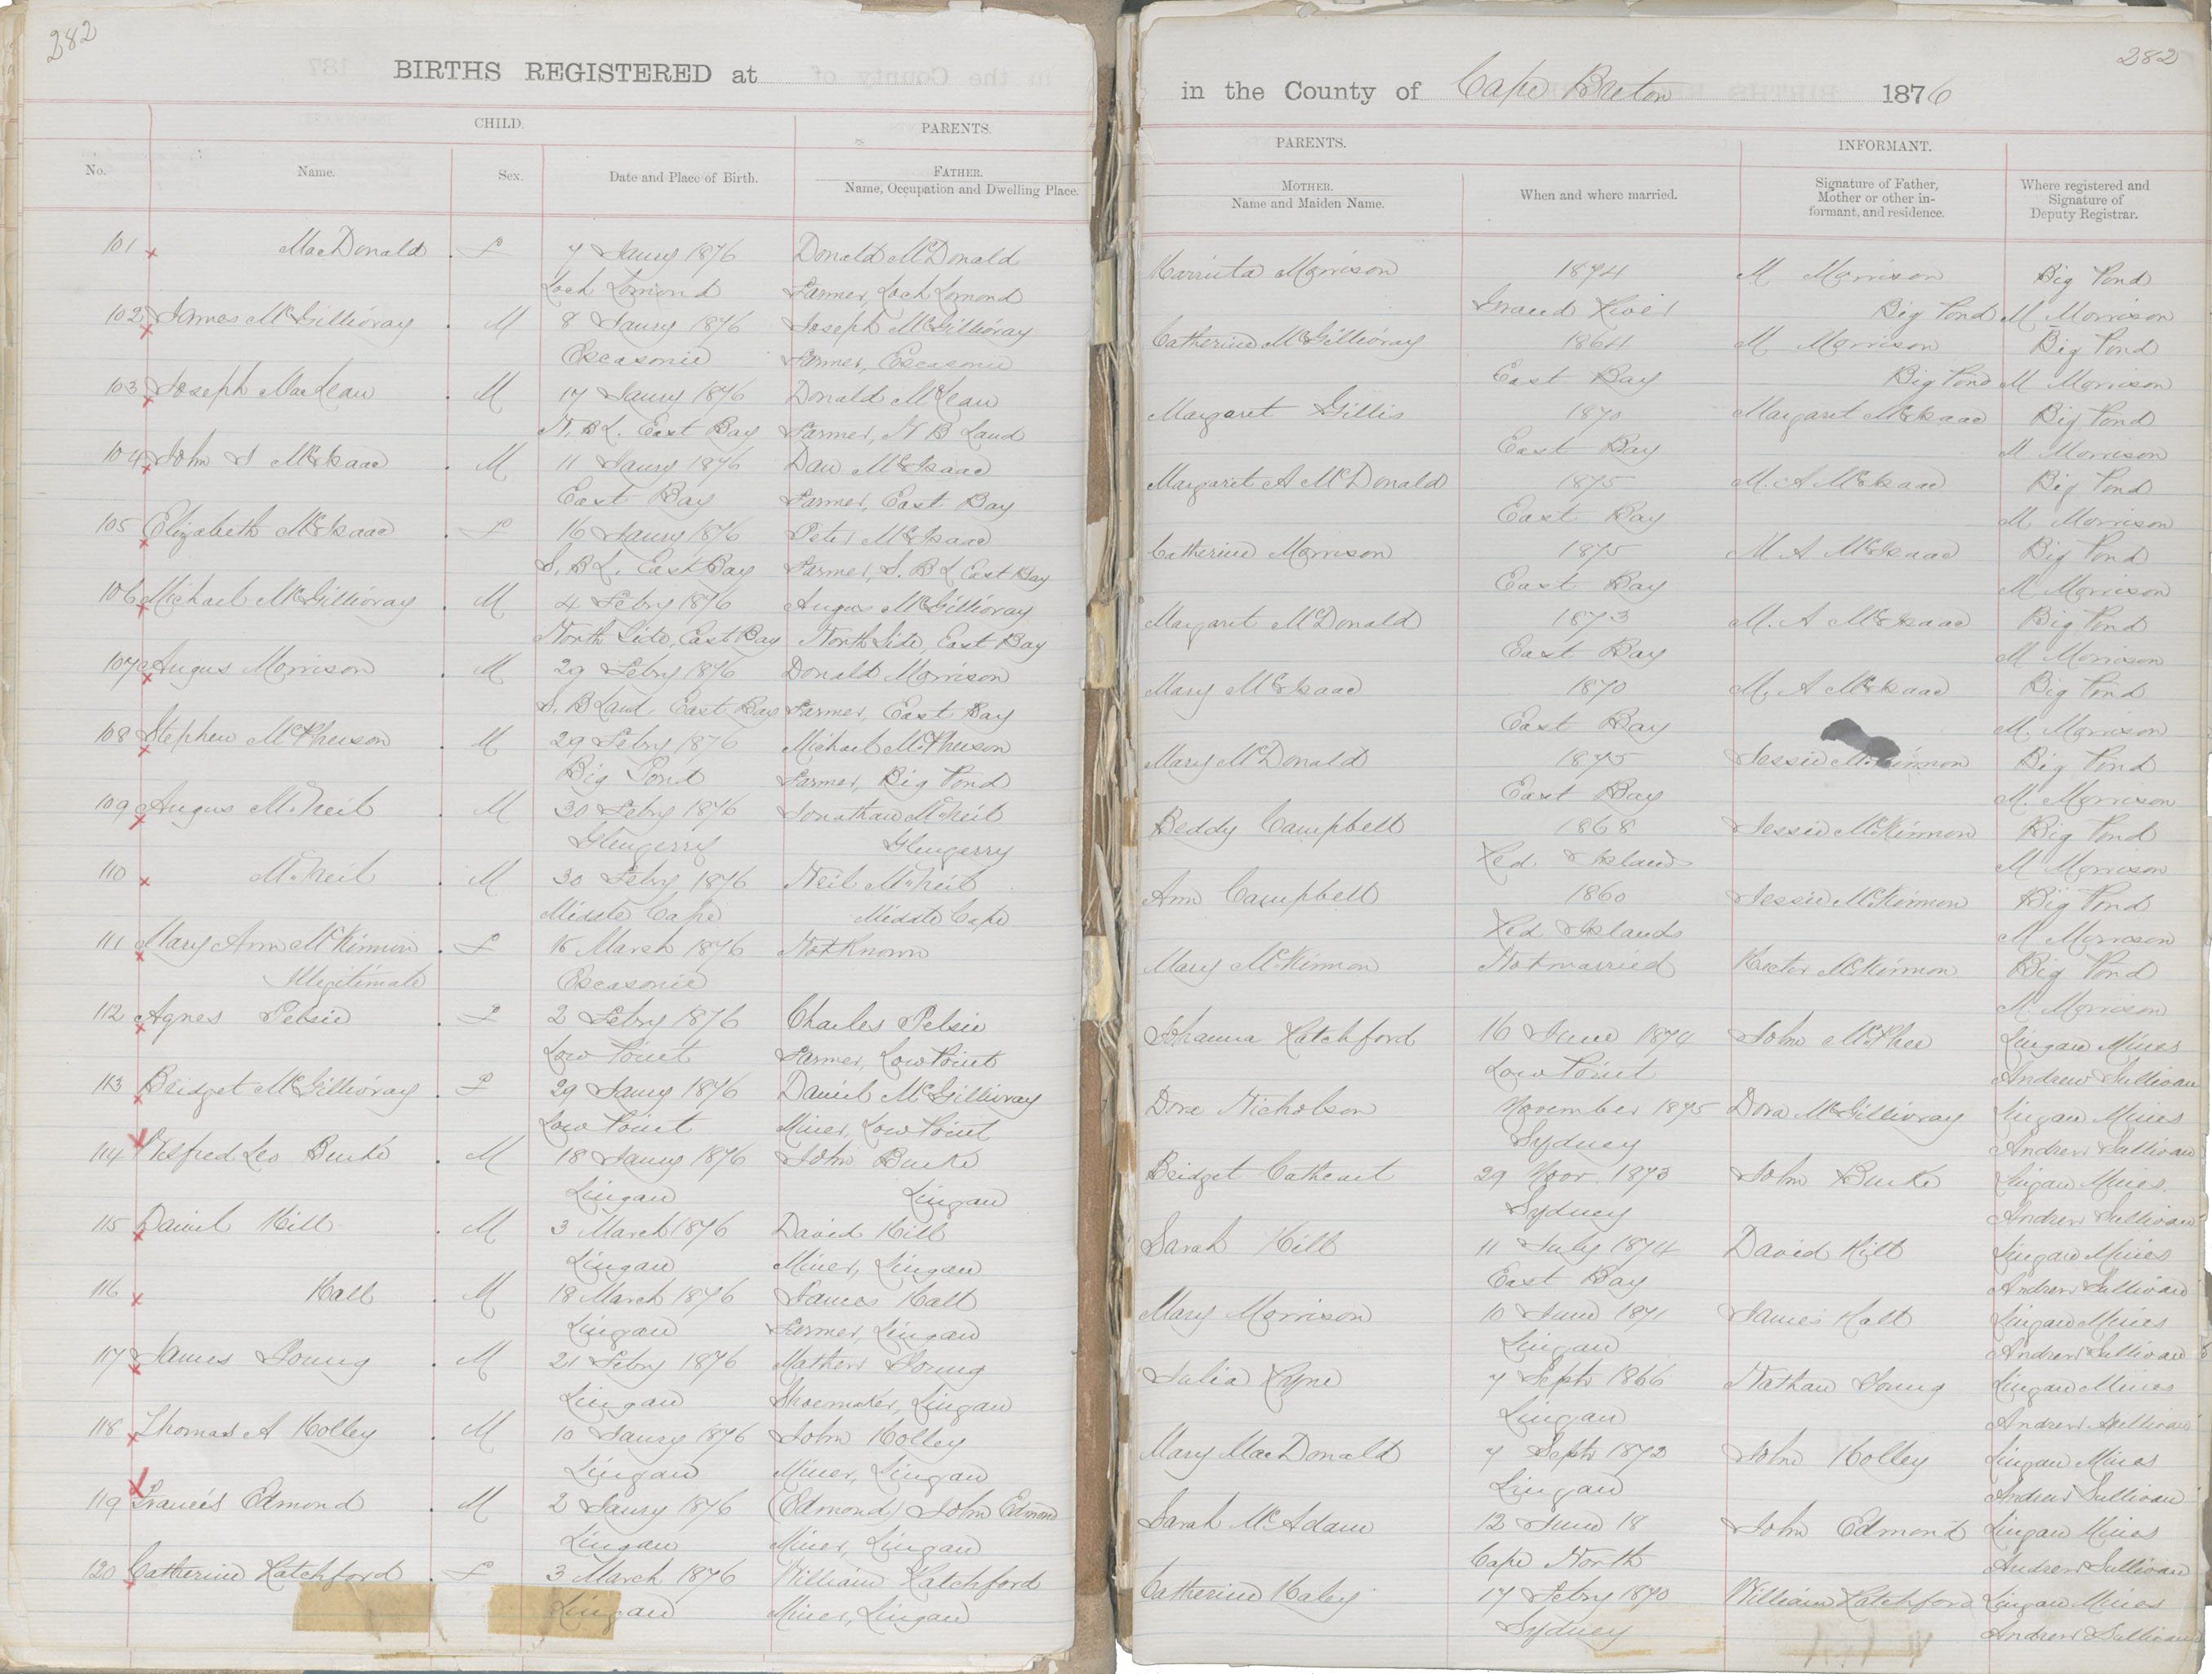 282
BIRTHS REGISTERED at
CHILD.
PARENTS.
No.
Name.
Sex.
Date and Place of Birth.
FATHER.
Name, Occupation and Dwelling Place.
101 MacDonald . F 7 Jany 1876 Donald McDonald
Loch Lomond Farmer, Loch Lomond
102 James McGillivray . M 8 Jany 1876 Joseph McGillivray
Escasonie Farmer, Escasonie
103 Joseph MacLean . M 17 Jany 1876 Donald McLean
N. B L. East Bay Farmer, N B Land
104 John J McIsaac . M 11 Jany 1876 Dan McIsaac
East Bay Farmer, East Bay
105 Elizabeth McIsaac . F 16 Jany 1876 Peter McIsaac
S. B L. East Bay Farmer, S. B L East Bay
106 Michael McGillivray . M 4 Febry 1876 Angus McGillivray
North Side, East Bay North Side, East Bay
107 Angus Morrison . M 29 Febry 1876 Donald Morrison
S. B Land East Bay Farmer, East Bay
108 Stephen McPherson . M 29 Febry 1876 Michael McPherson
Big Pond Farmer, Big Pond
109 Angus McNeil . M 30 Febry 1876 Jonathan McNeil
Glengerry Glengerry
110 McNeil . M 30 Febry 1876 Neil McNeil
Middle Cape Middle Cape
111 Mary Ann McKinnon . F March 1876 Not Known
Illegitimate Escasonie
112 Agnes Pelsie . F 2 Febry 1876 Charles Pelsie
Low Point Farmer, Low Point
113 Bridget McGillivray . F 29 Jany 1876 Daniel McGillivray
Low Point Miner, Low Point
114 Alsfred Leo Burke . M 18 Jany 1876 John Burke
Lingan Lingan
115 Daniel Hill . M 3 March 1876 David Hill
Lingan Miner, Lingan
116 Hall . M 18 March 1876 James Hall
Lingan Farmer, Lingan
117 James Young . M 21 Febry 1876 Mathew Young
Lingan Shoemaker, Lingan
118 Thomas A Holley . M 10 Jany 1876 John Holley
Lingan Miner, Lingan
119 Francis Edmond . M 2 Jany 1876 (Edmond) John Edmond
Lingan Miner, Lingan
120 Catherine Ratchford . F 3 March 1876 William Ratchford
Lingan Miner, Lingan
282
in the County of Cape Breton 1876
PARENTS.
INFORMANT.
MOTHER.
Name and Maiden Name.
When and where married.
Signature of Father,
Mother or other in-
formant, and residence.
Where registered and
Signature of
Deputy Registrar.
Harrieta Morrison 1874 M Morrison Big Pond
Grand River Big Pond M Morrison
Catherine McGillivray 1864 M Morrison Big Pond
East Bay Big Pond M Morrison
Margaret Gillis 1870 Margaret McIsaac Big Pond
East Bay M Morrison
Margaret A McDonald 1875 M. A McIsaac Big Pond
East Bay M Morrison
Catherine Morrison 1875 M A McIsaac Big Pond
East Bay M Morrison
Margaret McDonald 1873 M. A McIsaac Big Pond
East Bay M Morrison
Mary McIsaac 1870 M. A McIsaac Big Pond
East Bay M. Morrison
Mary McDonald 1875 Jessie McKinnon Big Pond
East Bay M. Morrison
Beddy Campbell 1868 Jessie McKinnon Big Pond
Red Islands M Morrison
Ann Campbell 1860 Jessie McKinnon Big Pond
Red Islands M Morrison
Mary McKinnon Not married Hector McKinnon Big Pond
M Morrison
Johanna Ratchford 16 June 1874 John McPhee Lingan Mines
Low Point Andrew Sullivan
Dora Nicholson November 1875 Dora McGillivray Lingan Mines
Sydney Andrew Sullivan
Bridget Cathcart 29 Novr. 1873 John Burke Lingan Mines.
Sydney Andrew Sullivan
Sarah Hill 11 July 1874 David Hill Lingan Mines
East Bay Andrew Sullivan
Mary Morrison 10 June 1871 James Hall Lingan Mines
Lingan Andrew Sullivan
Julia Ryne 7 Septr 1866 Nathan Young Lingan Mines
Lingan Andrew Sullivan
Mary MacDonald 7 Septr 1872 John Holley Lingan Mines
Lingan Andrew Sullivan
Sarah McAdam 12 June 18 John Edmond Lingan Mines
Cape North Andrew Sullivan
Catherine Haley 17 Febry 1870 William Ratchford Lingan Mines
Sydney Andrew Sullivan